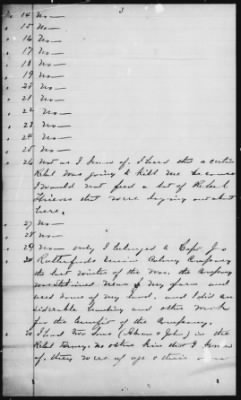 3
No 14 No —
" 15 No —
" 16 No —
" 17 No —
" 18 No —
" 19 No —
" 20 No —
" 21 No —
" 22 No —
" 23 No —
" 24 No —
" 25 No —
" 26 Not as I know of. I heard that a certain
Rebel was going to kill me because
I would not feed a lot of Rebel
that were laying out about
here.
" 27 No —
" 28 No —
" 29 No — only I belonged to Capt J. s
" 30 Company
the last winter of the War, the Company
near my farm and
used some of my land. and I did
and other work
for the benefit of the Company.
I had two Sons ( & John) in the
Rebel Army. no other kin that I know
of. they were of age &